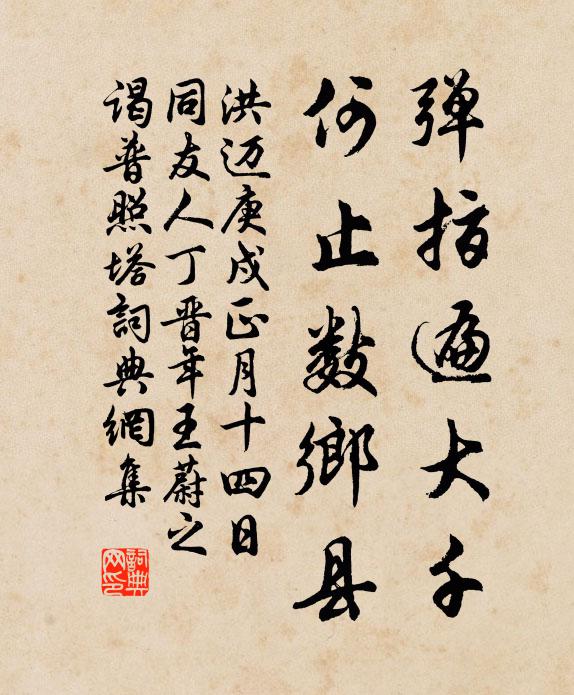 弹指遍大千
何止数鄉县
洪迈庚戌正月十四日
同友人丁晋年王蔚之
谒普照塔詞典網集
詞典网印